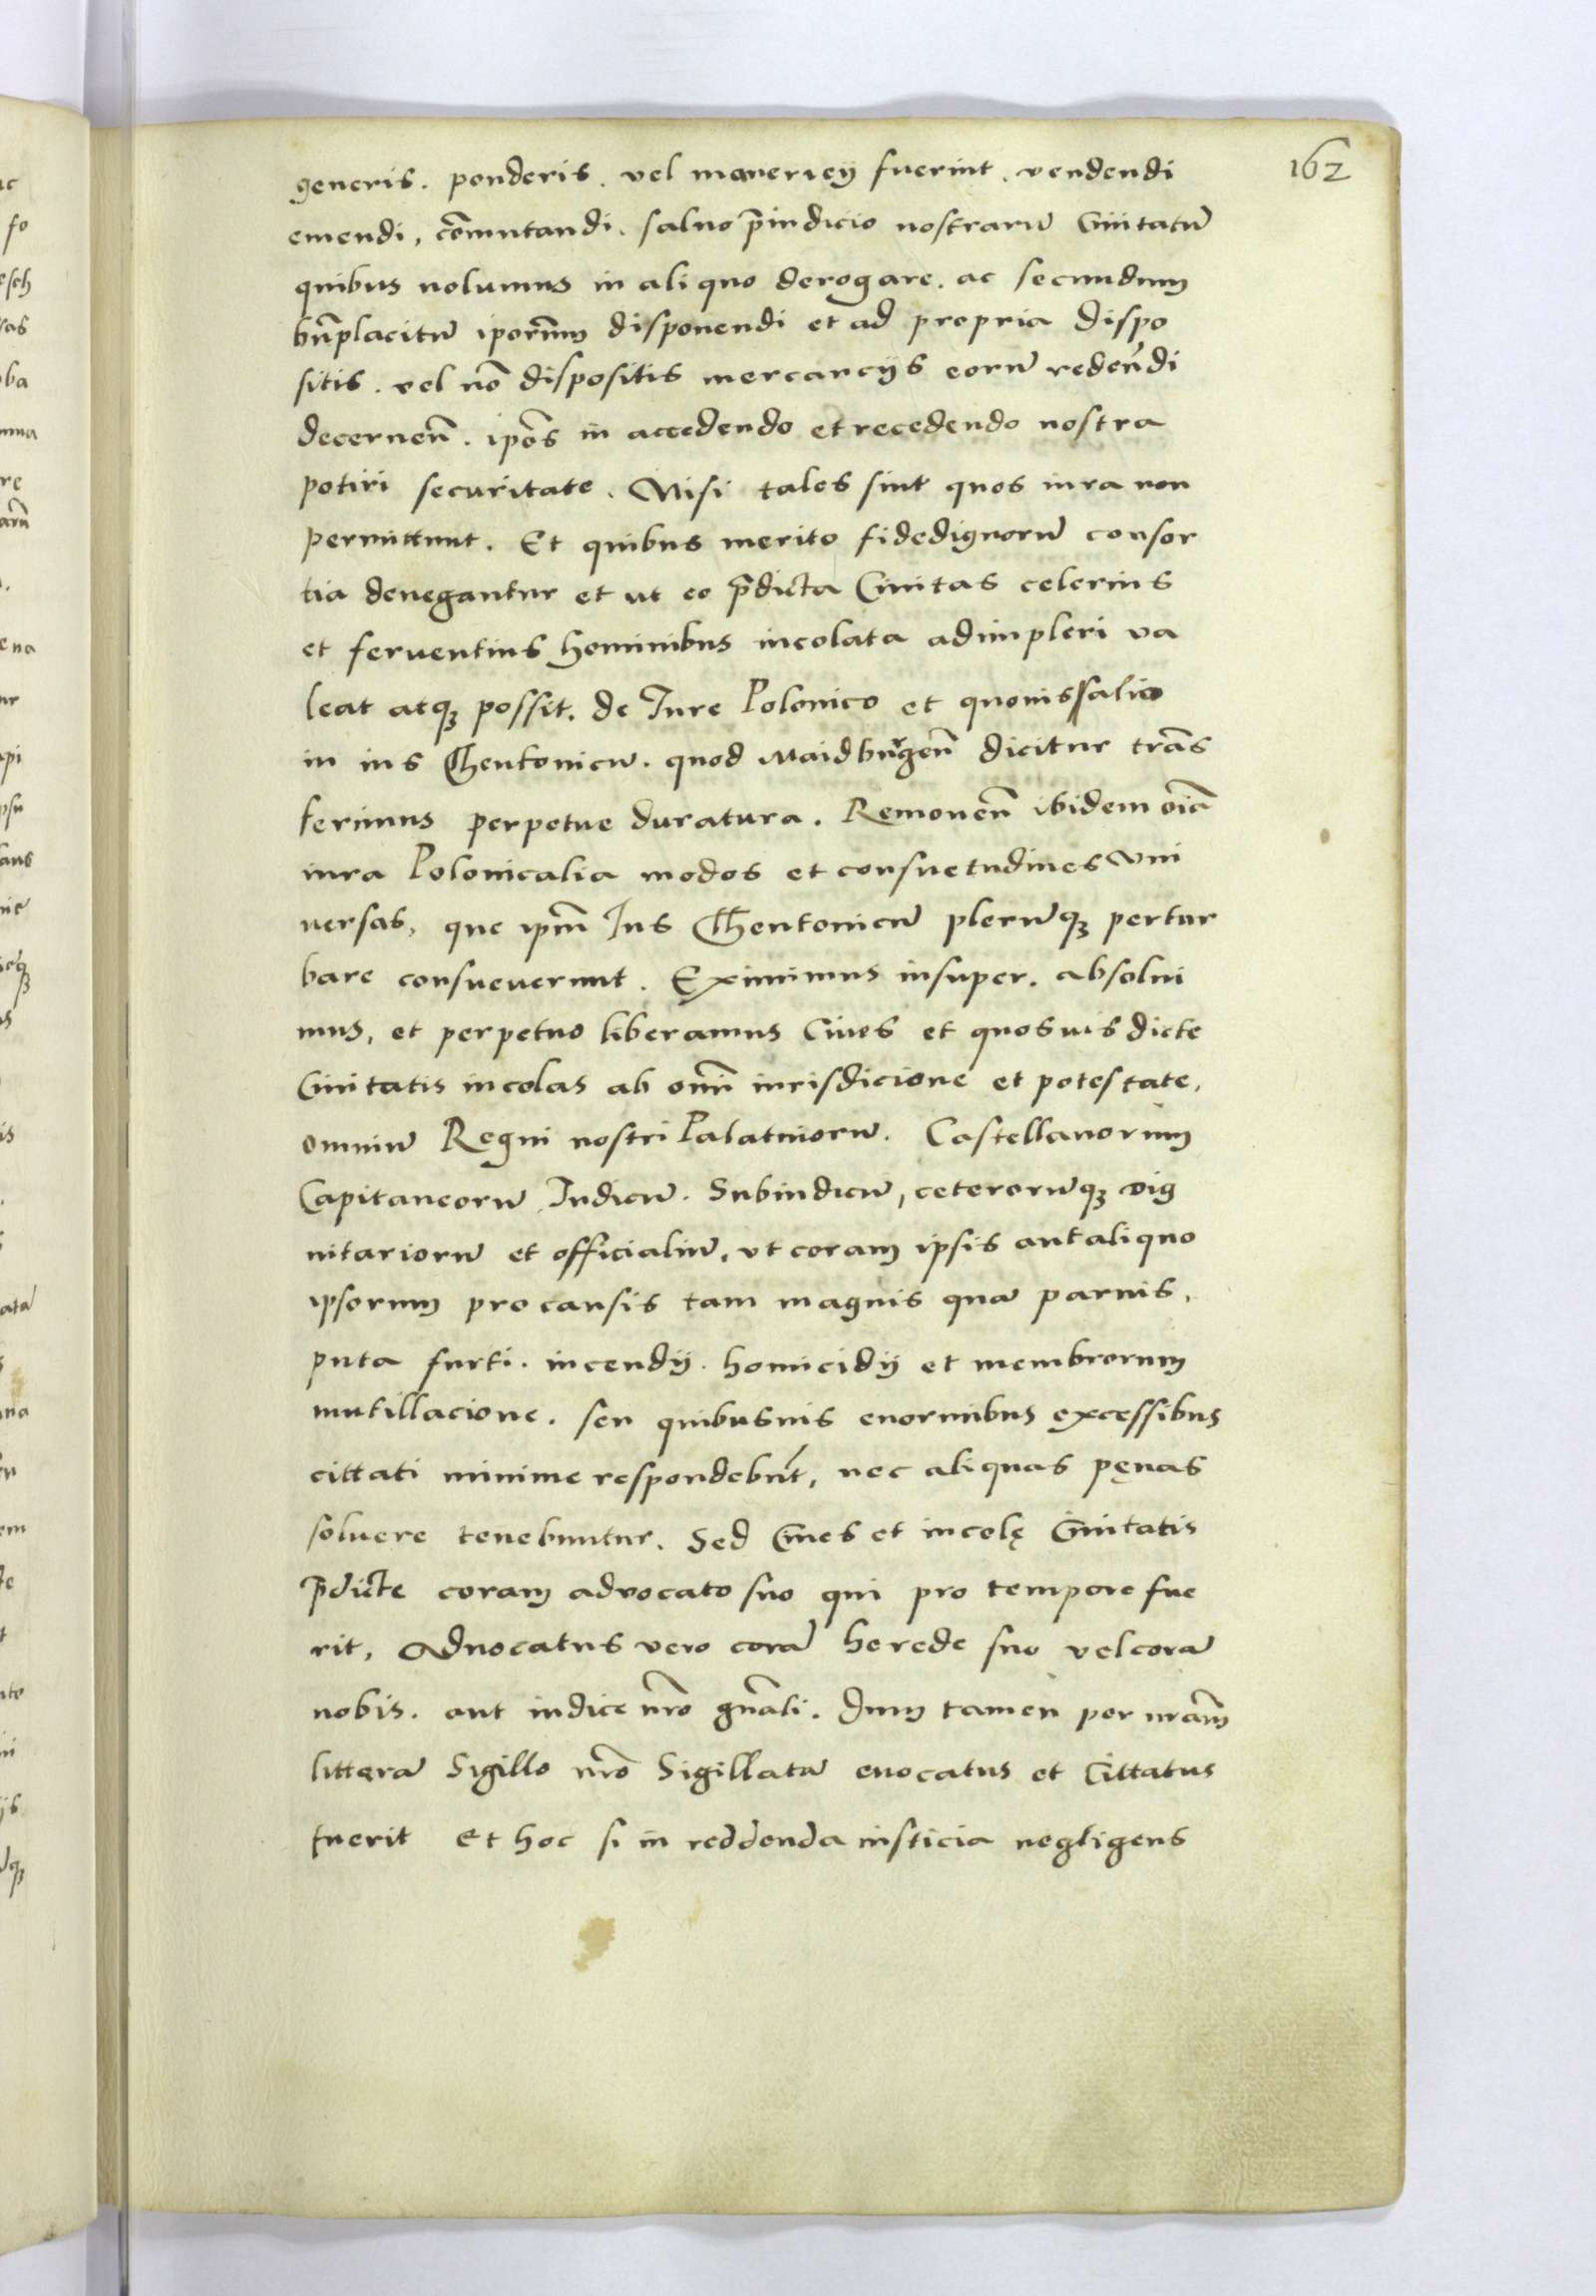 162
generis. ponderis. vel maneriey fuerint. vendendi
emendi, com̄utandi. saluo p̄iudicio nostrarū Ciuitatū
quibus nolumus in aliquo derogare. ac secundum
bn̄placitū ipor̄um disponendi et ad propria dispo
sitis. vel nō dispositis mercanciis eorū redeūdi
decernen̄. ipōs in accedendo et recedendo nostra
potiri securitate. Nisi tales sint quos iura non
permittunt. Et quibus merito fidedignorū consor
tia denegantur et ut eo p̄dicta Ciuitas celerius
et feruentius hominibus incolata adimpleri va
leat atqꝫ possit. de Iure Polonico et quouis salico
in ius Theutonicū. quod Maidburgen̄ dicitur trās
ferimus perpetue duratura. Remouen̄ ibidem oīa
iura Polonicalia modos et consuetudines vni
uersas, que ipm̄ Ius Theutonicū plerūqꝫ pertur
bare consueuerunt. Eximimus insuper. absolui
mus, et perpetuo liberamus Ciues et quosuis dicte
Ciuitatis incolas ab om̄i iurisdicione et potestate,
omniū Regni nostri Palatinorū. Castellanorum
Capitaneorū Iudicū. Subiudicū, ceterorūqꝫ dig
nitariorū et officialiū, vt coram ipsis aut aliquo
ipsorum pro causis tam magnis quā paruis,
puta furti. incendij. homicidij et membrorum
mutillacione. seu quibusuis enormibus excessibus
cittati minime respondebūt, nec aliquas pęnas
soluere tenebuntur. Sed Ciues et incolę Ciuitatis
p̄dicte coram advocato suo qui pro tempore fue
rit, Aduocatus vero corā herede suo vel corā
nobis. aut iudice nr̄o gn̄ali. Dum tamen per nr̄am
litterā Sigillo nr̄o Sigillatā euocatus et Cittatus
fuerit Et hoc si in reddenda iusticia negligens